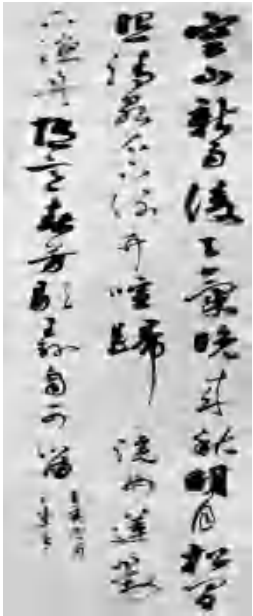 空山新雨後天氣晚来秋明月松間
照清泉石上流竹喧歸浣女蓮動
下漁舟随意春芳歇王孫自可留